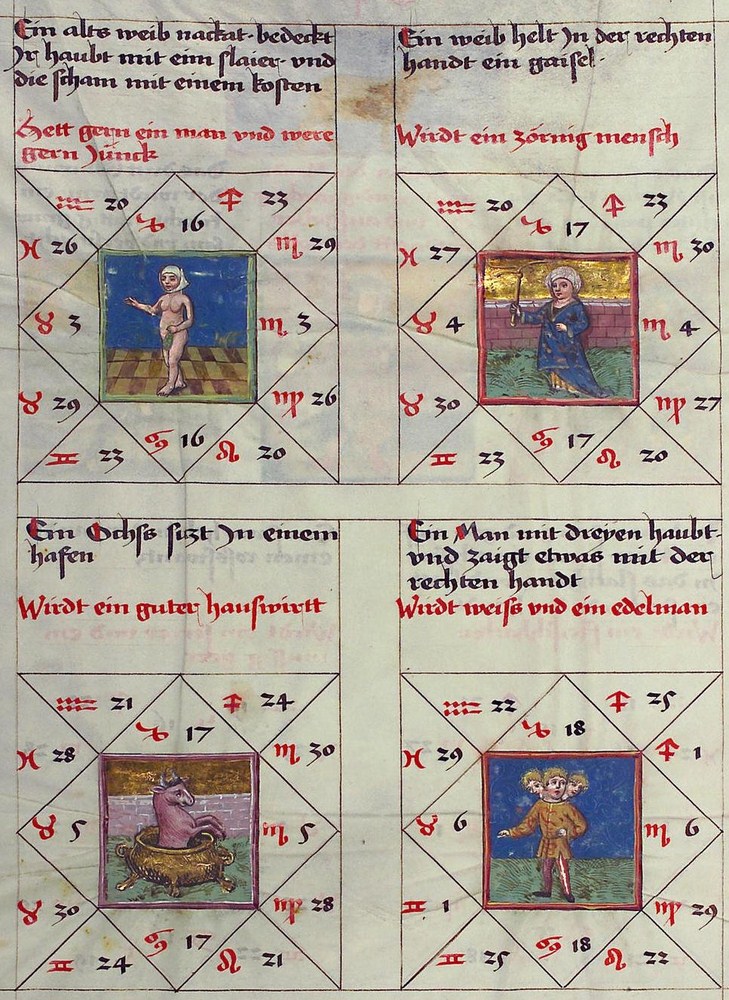 Ein alts weib nackat · bedeckt
Jr haubt mit eim slaier · vnd
die scham mit einem kosten
Hett gern ein man vnd were
gern Jünck
♒ 20
♑ 16
♐ 23
♓ 26
♏ 29
♉ 3
♏ 3
♉ 29
♍ 26
♊ 23
♋ 16
♌ 20
Ein weib helt Jn der rechten
handt ein gaisel ·
Wirdt ein zörnig mensch
♒ 20
♑ 17
♐ 23
♓ 27
♏ 30
♉ 4
♏ 4
♉ 30
♍ 27
♊ 23
♋ 17
♌ 20
Ein Ochss sizt Jn einem
hafen
Wirdt ein guter hauswirtt
♒ 21
♑ 17
♐ 24
♓ 28
♏ 30
♉ 5
♏ 5
♉ 30
♍ 28
♊ 24
♋ 17
♌ 21
Ein Man mit dreyen haubt ·
vnd zaigt etwas mit der
rechten handt
Wirdt weiss vnd ein edelman
♒ 22
♑ 18
♐ 25
♓ 29
♐ 1
♉ 6
♏ 6
♊ 1
♍ 29
♊ 25
♋ 18
♌ 22